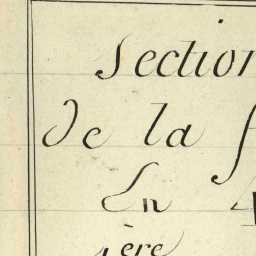 Section
de la
En
1ère